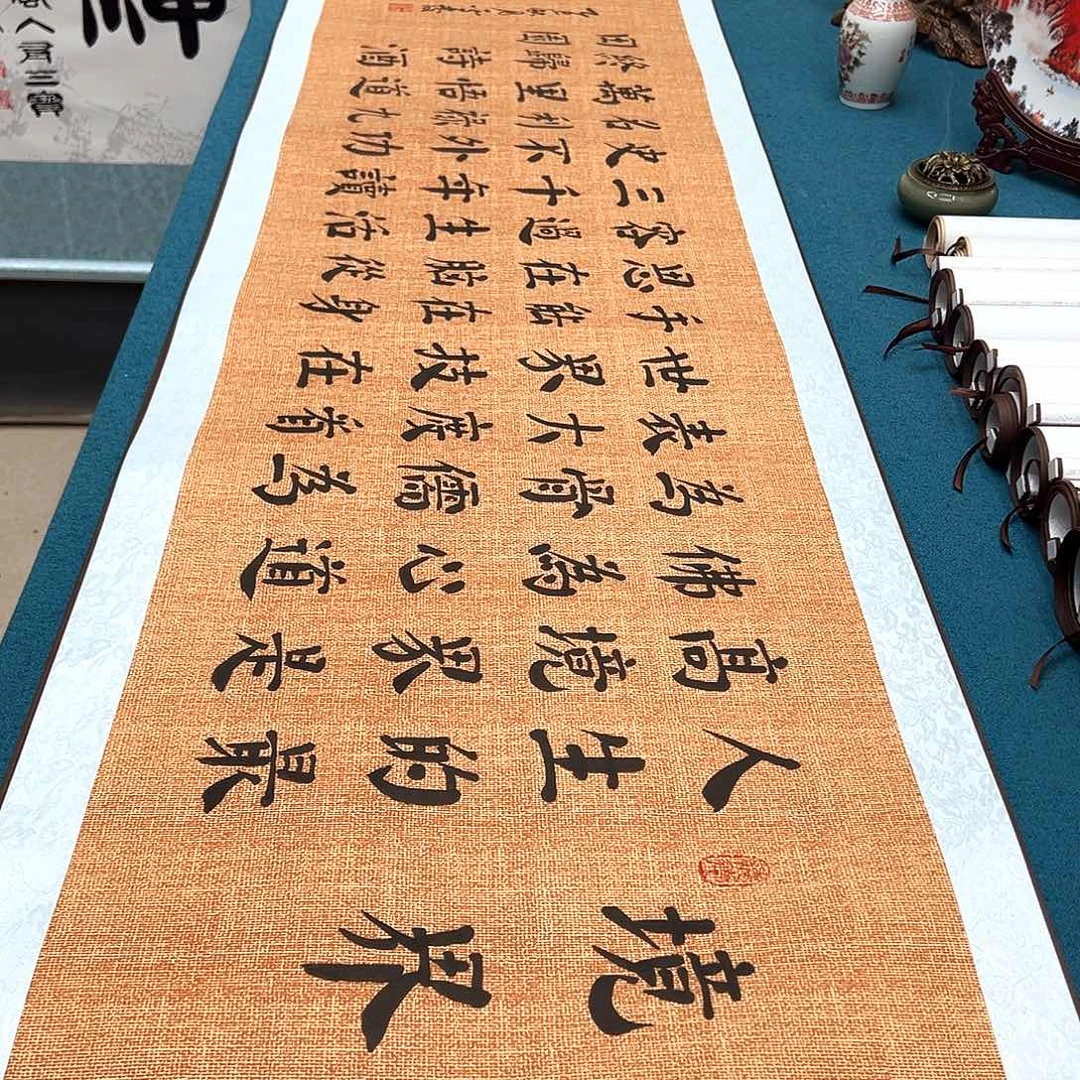 境界
人生的最
高境界是
佛為心道
為骨儒為
表大度看
世界技在
手能在身
思在腦從
容過生活
三千年讀
史不外功
名利祿九
萬里悟道
終歸詩酒
田園
人有三寶